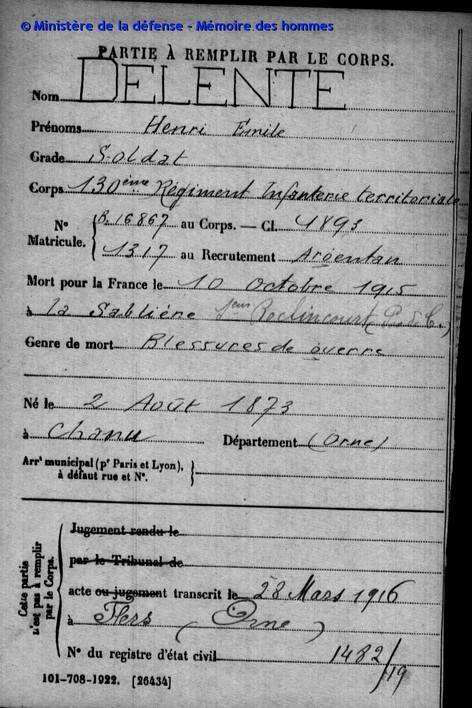 © Ministère de la défense - Mémoire des hommes
PARTIE À REMPLIR PAR LE CORPS.
Nom DELENTE
Prénoms Henri Emile
Grade Soldat
Corps 130ème Régiment Infanterie territoriale
N° Matricule. { B.16867 au Corps. — Cl. 1893
1317 au Recrutement Argentan
Mort pour la France le 10 octobre 1915
à La Sablière Roclincourt (P. d. C.)
Genre de mort Blessures de guerre
Né le 2 Août 1873
à Chanu Département (Orne)
Arrt municipal (pr Paris et Lyon), à défaut rue et N°.
Cette partie n'est pas à remplir par le Corps.
Jugement rendu le
par le Tribunal de
acte ou jugement transcrit le 28 Mars 1916
à Flers (Orne)
N° du registre d'état civil 1482/19
101-708-1922. [26434]